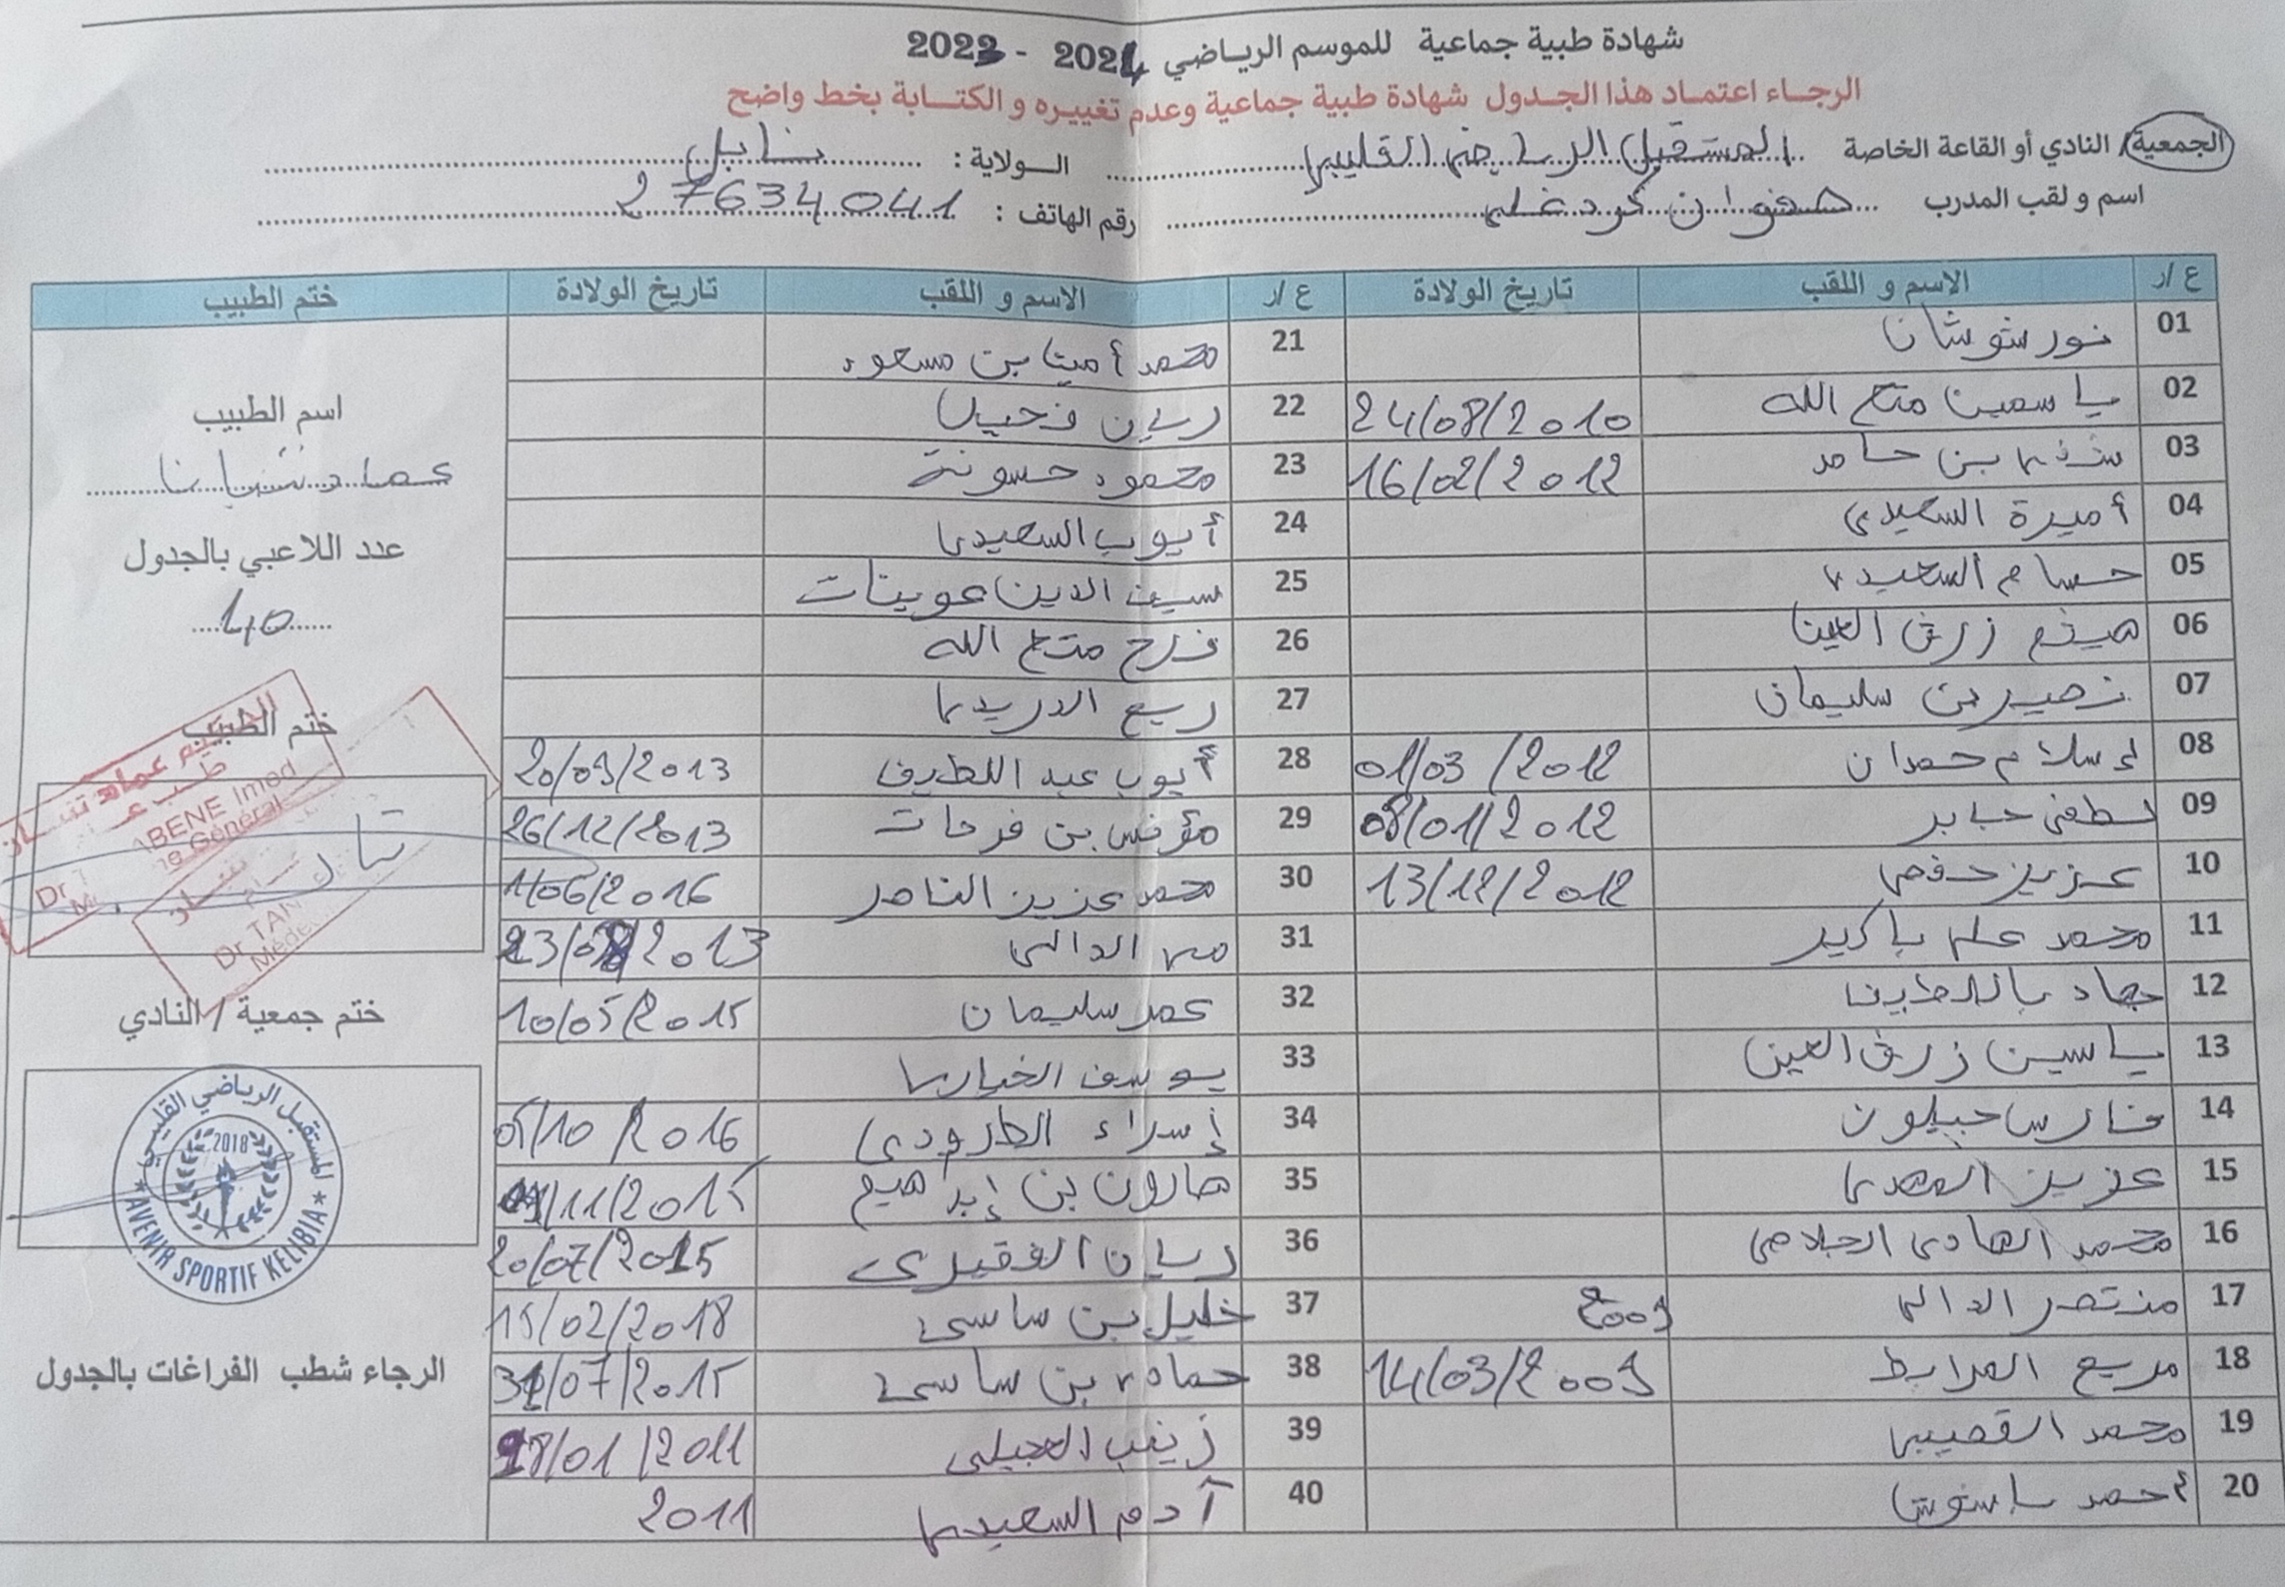 شهادة طبية جماعية للموسم الرياضي 2023 - 2024
الرجاء اعتماد هذا الجدول شهادة طبية جماعية وعدم تغييره و الكتابة بخط واضح
الجمعية/ النادي أو القاعة الخاصة المستقبل الرياضي القليبي الولاية : نابل
اسم و لقب المدرب صفوان كردغلي رقم الهاتف : 27634041
ع /ر الاسم و اللقب تاريخ الولادة ع /ر الاسم و اللقب تاريخ الولادة ختم الطبيب
01 نور شوشان
02 ياسمين متع الله 24/08/2010
03 بن حامد 16/02/2012
04 أميرة السعيدي
05 حسام السعيدي
06 هيثم زرق العين
07 نصير بن سليمان
08 إسلام حمدان 01/03/2012
09 لطفي جابر 08/01/2012
10 عزيز حفصي 13/12/2012
11 محمد علي باكير
12 جهاد
13 ياسين زرق العين
14 فارس جبلون
15 عزيز المهدي
16 محمد الهادي الجلاصي
17 منتصر الدالي 2009
18 مريم المرابط 14/03/2009
19 محمد القصيبي
20 أحمد
21 محمد أمين بن مسعود
22 ريان
23 محمود حسونة
24 أيوب السعيدي
25 سيف الدين عوينات
26 فرح متع الله
27 ربيع الدريدي
28 أيوب عبد اللطيف 20/09/2013
29 مؤنس بن فرحات 26/12/2013
30 محمد عزيز الناصر 1/06/2016
31 الدالي 2013
32 عمر سليمان 10/05/2015
33 يوسف الخياري
34 إسراء الطرودي 05/10/2016
35 هارون بن إبراهيم 11/2015
36 ريان الفقيري 20/07/2015
37 خليل بن ساسي 15/02/2018
38 حمادي بن ساسي 31/07/2015
39 زينب العجيلي 18/01/2011
40 آدم السعيدي 2011
اسم الطبيب
عماد
عدد اللاعبي بالجدول
40
ختم الطبيب
ختم جمعية / النادي
المستقبل الرياضي القليبي
2018
AVENIR SPORTIF KELIBIA
الرجاء شطب الفراغات بالجدول